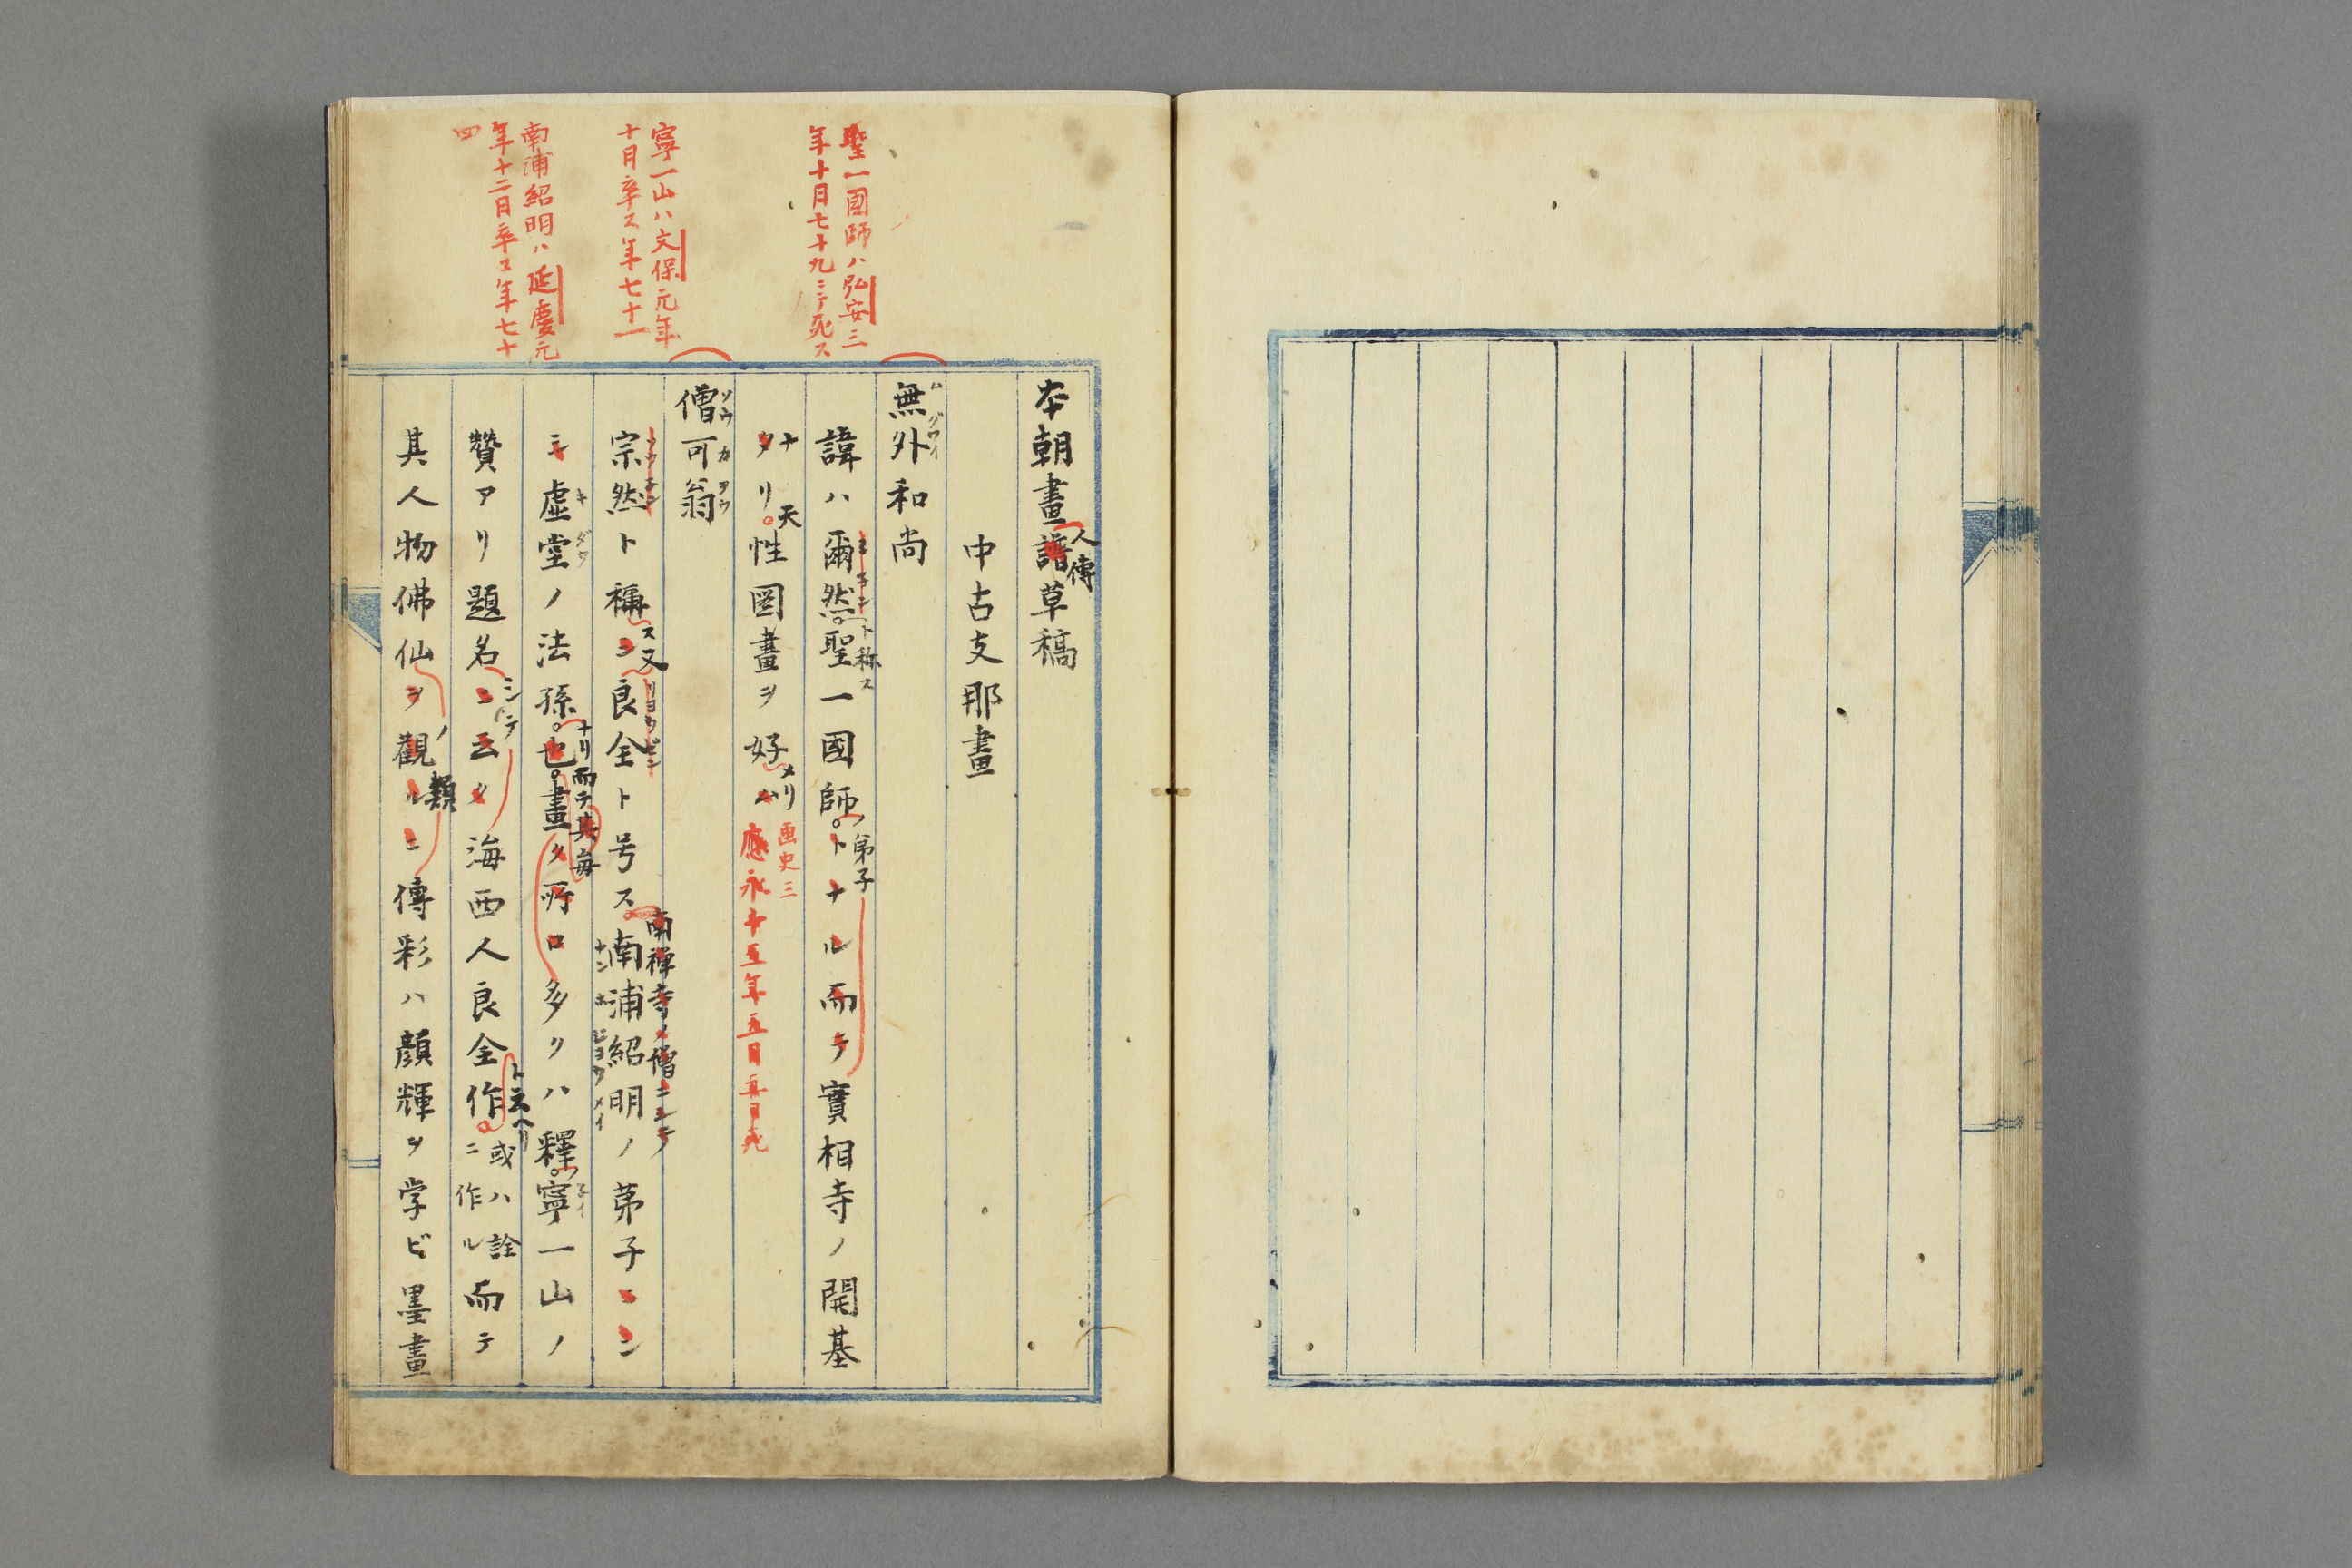 聖一國師ハ弘安三
年十月七十九ニテ死ス
寧一山ハ文保元年
十月卒ス年七十一
南浦紹明ハ延慶元
年十二月卒ス年七十
四
本朝畫譜草稿
人傳
中古支那畫
無外和尚
ム グワイ
諱ハ爾然聖一國師トナル而テ實相寺ノ開基
ト称ス
ノ弟子
タリ性圖畫ヲ好ム
ナ
天
メリ
画史三
應永十五年五月再日死
僧可翁
ソウ カ ヲウ
宗然ト稱シ良全ト号ス南浦紹明ノ弟子ニシ
ス又
南禅寺ノ僧ニシテ
ナン ホ
虚堂ノ法孫也畫ク所ロ多クハ釋寧一山ノ
キ ダウ
ナリ而テ其毎
贊アリ題名ニ云ク海西人良全作
シテ
ト云ヘリ
或ハ詮
ニ作ル
而テ
其人物佛仙ヲ觀ルニ傳彩ハ顔輝ヲ学ビ墨畫
ノ類